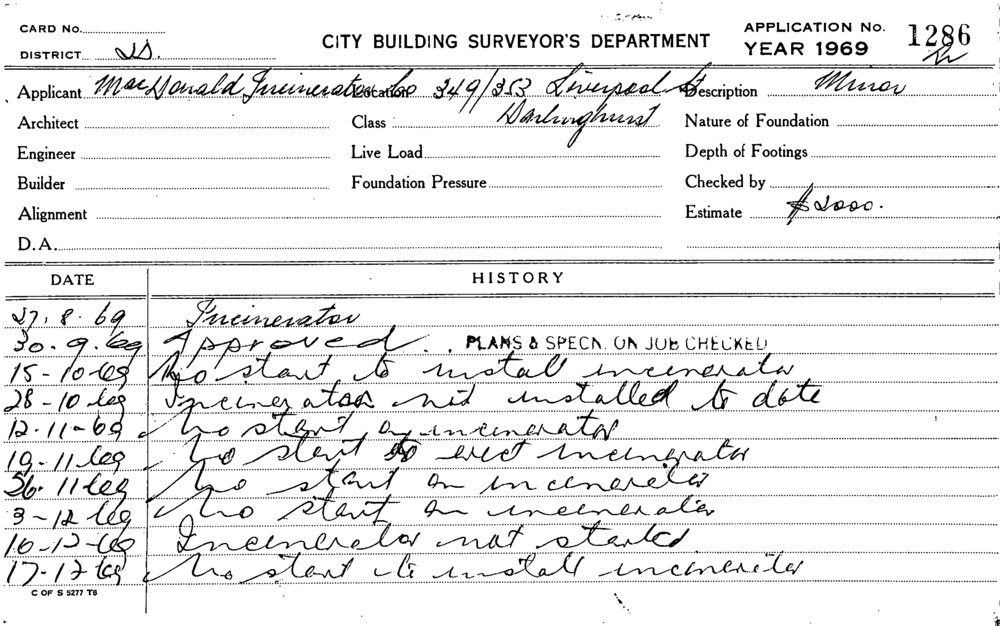 CARD No.
DISTRICT
CITY BUILDING SURVEYOR'S DEPARTMENT
APPLICATION No. 1286
YEAR 1969
Applicant MacDonald Incinerator Co
Location 349/353 Liverpool St
Darlinghurst
Description Minor
Architect
Class
Nature of Foundation
Engineer
Live Load
Depth of Footings
Builder
Foundation Pressure
Checked by
Alignment
Estimate $2000.
D.A.
DATE HISTORY
27.8.69 Incinerator
30.9.69 Approved. PLANS & SPECN. ON JOB CHECKED
15-10-69 No start to install incinerator
28-10-69 Incinerator not installed to date
12-11-69 No start on incinerator
19-11-69 No start to erect incinerator
26-11-69 No start on incinerator
3-12-69 No start on incinerator
10-12-69 Incinerator not started
17-12-69 No start to install incinerator
C OF S 5277 T6